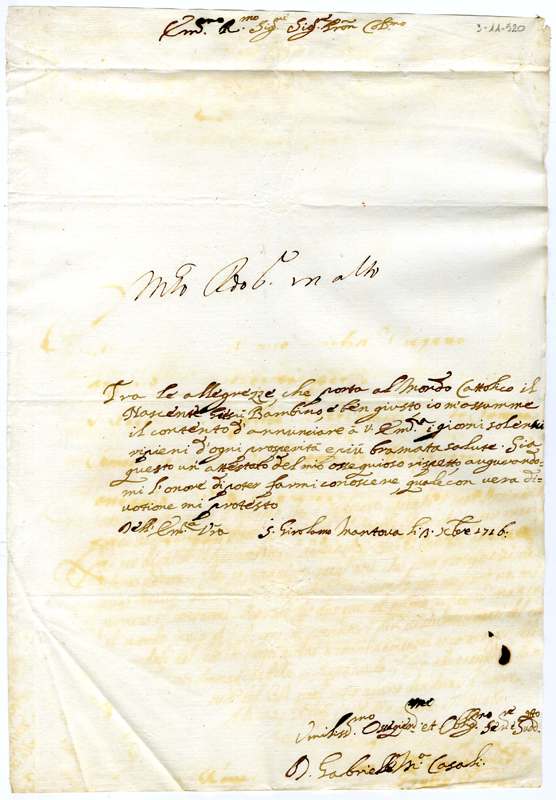 Em.mo R.mo Sig.re Sig.re Pron Col.mo
3-11-520
in alto
Tra le allegrezze, che porta al Mondo Cattolico il
Nascente Giesù Bambino, è ben giusto io m'assumme
il contento d'annunciare a V. Em.za i giorni solenni
ripieni d'ogni prosperità e più bramata salute. Sia
questo un attestato del mio ossequioso rispetto augurando-
mi l'onore di poter farmi conoscere quale con vera di-
votione mi protesto
Dell' Em.za Vra S. Girolamo Mantova li 13. Xbre 1716.
Umiliss.mo et Oblig.mo
D. Gabriele M.a Casali.